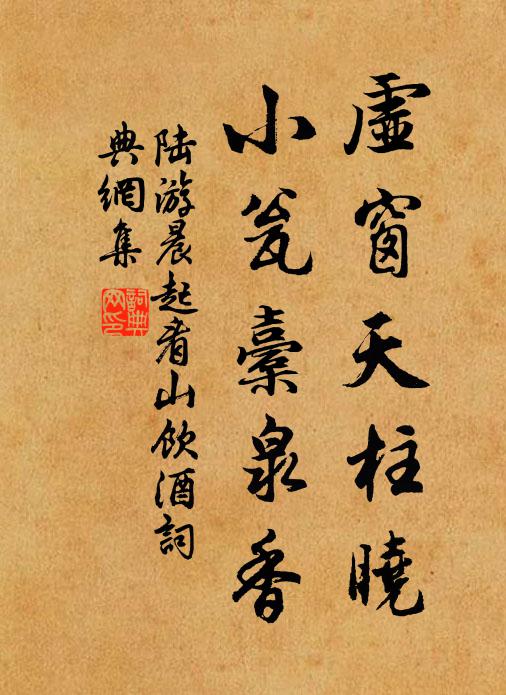 虛窗天柱曉
小瓮橐泉香
陸游晨起看山飲酒詞
典網集
詞典網印